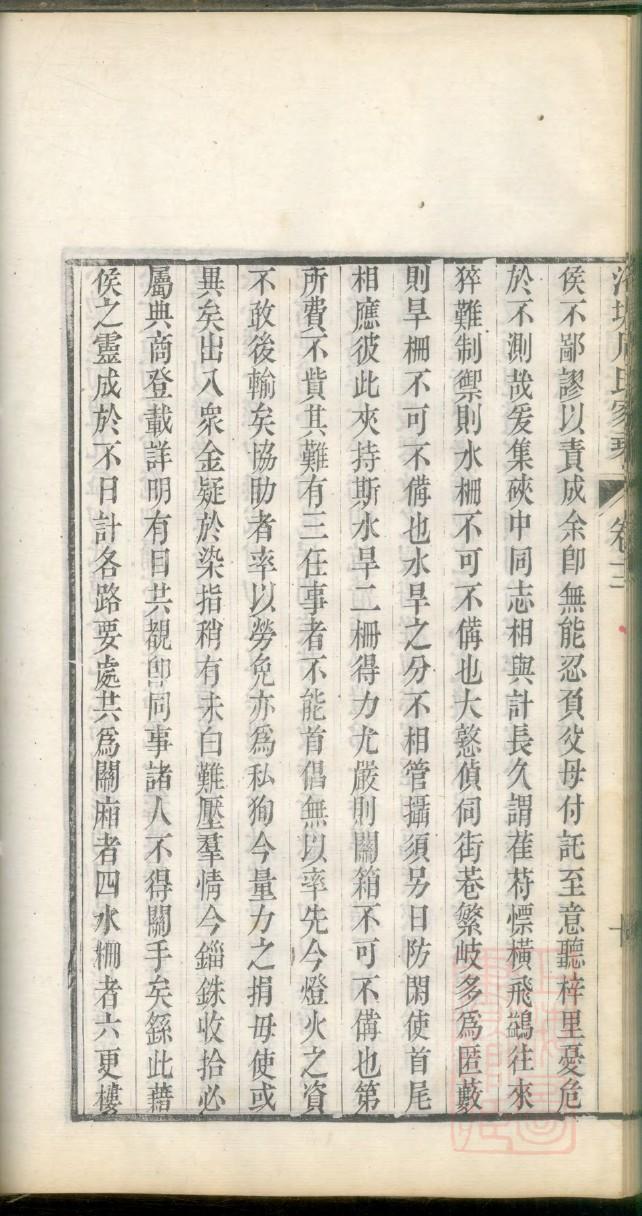 周氏家 卷十二
侯不鄙謬以責成余卽無能忍負父母付託至意聽梓里憂危
於不測哉爰集硤中同志相與計長久謂萑苻慓橫飛鷁往來
猝難制禦則水柵不可不備也大憝偵伺街巷繁岐多爲匿藪
則旱柵不可不備也水旱之分不相管攝須另日防閑使首尾
相應彼此夾持斯水旱二柵得力尤嚴則關箱不可不備也第
所費不貲其難有三任事者不能首倡無以率先今燈火之資
不敢後輸矣協助者率以勞免亦爲私狥今量力之捐毋使或
異矣出入衆金疑於染指稍有未白難壓羣情今錙銖收拾必
屬典商登載詳明有目共覩卽同事諸人不得關手矣繇此藉
侯之靈成於不日計各路要處共爲關廂者四水柵者六更樓